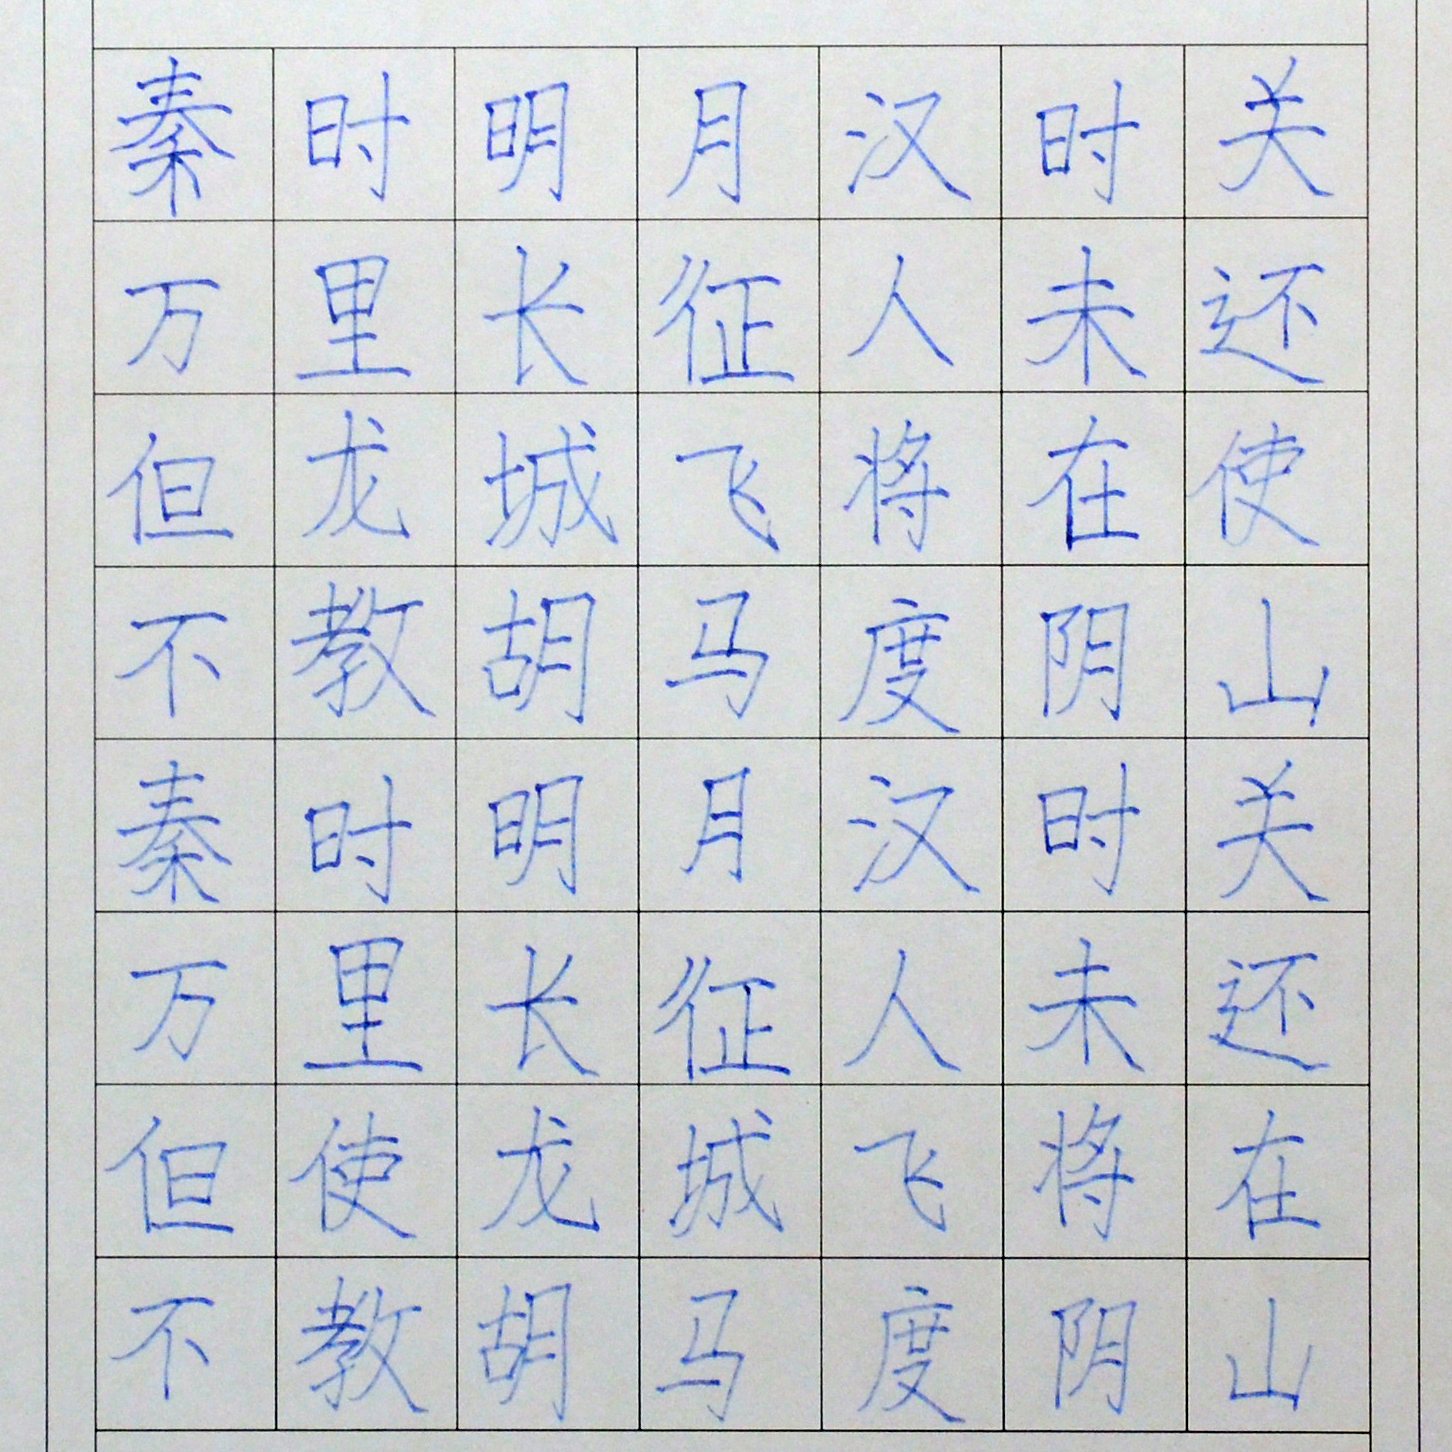 秦时明月汉时关
万里长征人未还
但龙城飞将在使
不教胡马度阴山
秦时明月汉时关
万里长征人未还
但使龙城飞将在
不教胡马度阴山